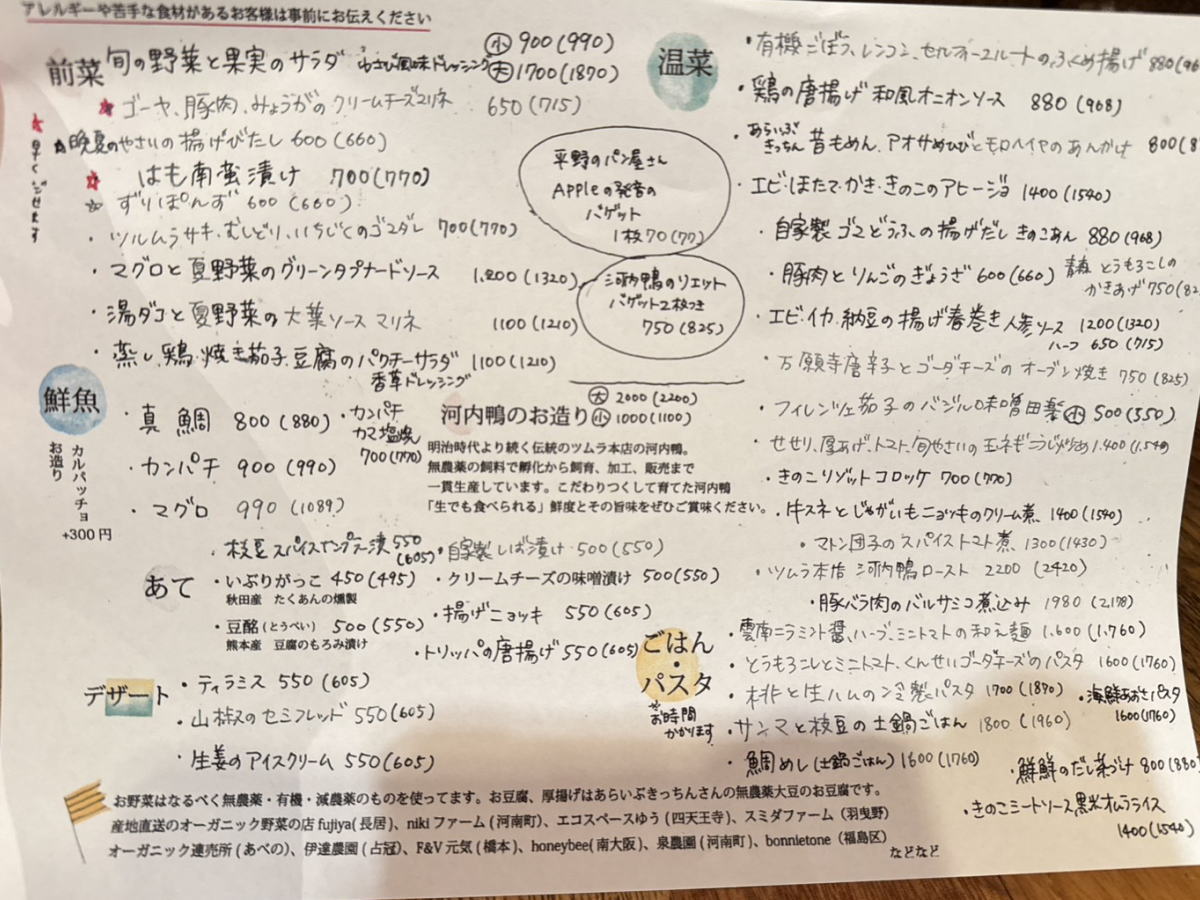 アレルギーや苦手な食材があるお客様は事前にお伝えください
前菜
旬の野菜と果実のサラダ わさび風味ドレッシング
小 900(990)
大 1700(1870)
★早くだせます
★ゴーヤ、豚肉、みょうがのクリームチーズマリネ 650(715)
★晩夏のやさいの揚げびたし 600(660)
★はも南蛮漬け 700(770)
☆ずりぽんず 600(660)
・ツルムラサキ、むしどり、いちじくのゴマダレ 700(770)
・マグロと夏野菜のグリーンタプナードソース 1,200(1320)
・湯ダコと夏野菜の大葉ソースマリネ 1100(1210)
・蒸し鶏、焼き茄子、豆腐のパクチーサラダ 1100(1210)
香草ドレッシング
平野のパン屋さん
Appleの発音の
バゲット
1枚70(77)
河内鴨のリエット
バゲット2枚つき
750(825)
鮮魚
お造り
カルパッチョ
+300円
・真鯛 800(880)
・カンパチ 900(990)
・マグロ 990(1089)
・カンパチ
カマ塩焼
700(770)
河内鴨のお造り
大 2000(2200)
小 1000(1100)
明治時代より続く伝統のツムラ本店の河内鴨。
無農薬の飼料で孵化から飼育、加工、販売まで
一貫生産しています。こだわりつくして育てた河内鴨
「生でも食べられる」鮮度とその旨味をぜひご賞味ください。
あて
・枝豆スパイスナンプラー漬 550(605)
・自家製しば漬け 500(550)
・いぶりがっこ 450(495)
秋田産 たくあんの燻製
・クリームチーズの味噌漬け 500(550)
・豆酩(とうべい) 500(550)
熊本産 豆腐のもろみ漬け
・揚げニョッキ 550(605)
・トリッパの唐揚げ 550(605)
デザート
・ティラミス 550(605)
・山椒のセミフレッド 550(605)
・生姜のアイスクリーム 550(605)
温菜
・有機ごぼう、レンコン、セルフィーユルートのふくめ揚げ 880
・鶏の唐揚げ 和風オニオンソース 880(968)
・あらいぶきっちん 昔もめん、アオサめひびとモロヘイヤのあんかけ 800
・エビ・ほたて・かき・きのこのアヒージョ 1400(1540)
・自家製ゴマどうふの揚げだし きのこあん 880(968)
・豚肉とりんごのぎょうざ 600(660)
とうもろこしの
かきあげ 750
・エビ、イカ、納豆の揚げ春巻き 人参ソース 1200(1320)
ハーフ 650(715)
・万願寺唐辛子とゴーダチーズのオーブン焼き 750(825)
・フィレンツェ茄子のバジル味噌田楽 小 500(550)
・せせり、厚あげ、トマト、旬やさいの玉ネギこうじ炒め 1.400(1.540
・きのこリゾットコロッケ 700(770)
・牛スネとじゃがいもニョッキのクリーム煮 1400(1540)
・マトン団子のスパイストマト煮 1300(1430)
・ツムラ本店 河内鴨ロースト 2200(2420)
・豚バラ肉のバルサミコ煮込み 1980(2,178)
ごはん・パスタ
※お時間かかります
・雲南ニラミント醤、ハーブ、ミニトマトの和え麺 1.600(1.760)
・とうもろこしとミニトマト、くんせいゴーダチーズのパスタ 1600(1760)
・桃と生ハムの冷製パスタ 1700(1870)
・海鮮あおさパスタ
1600(1760)
・サンマと枝豆の土鍋ごはん 1800(1960)
・鯛めし(土鍋ごはん) 1600(1760)
・鮮鮮のだし茶づけ 800(880)
・きのこミートソース黒米オムライス
1400(1540)
お野菜はなるべく無農薬・有機・減農薬のものを使ってます。お豆腐、厚揚げはあらいぶきっちんさんの無農薬大豆のお豆腐です。
産地直送のオーガニック野菜の店fujiya(長居)、nikiファーム(河南町)、エコスペースゆう(四天王寺)、スミダファーム(羽曳野)
オーガニック連売所(あべの)、伊達農園(占冠)、F&V元気(橋本)、honeybee(南大阪)、泉農園(河南町)、bonnietone(福島区)
などなど